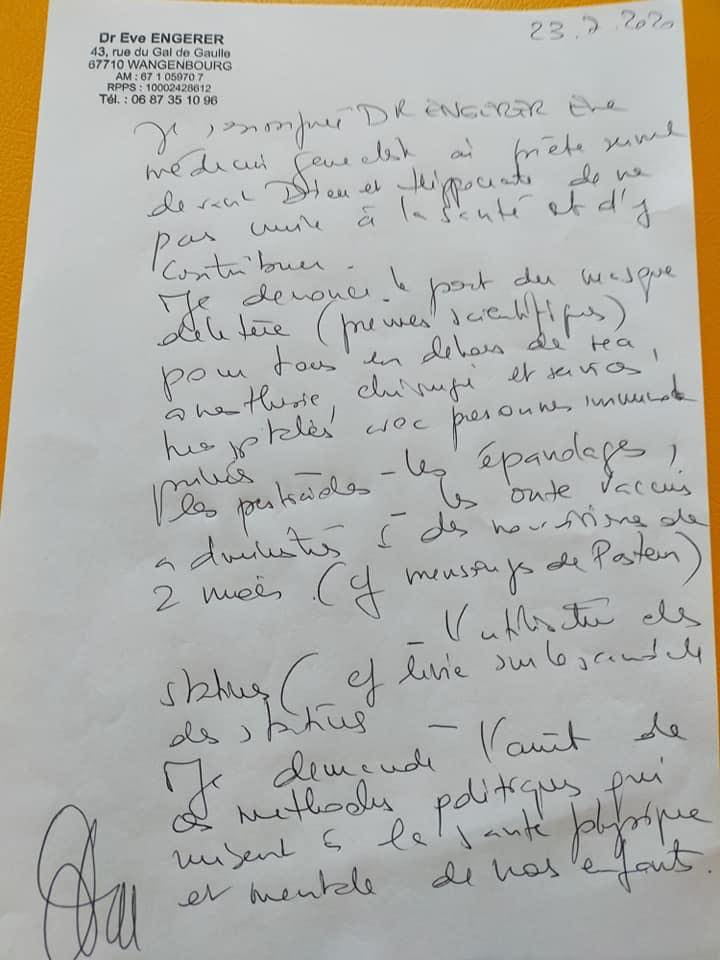 23.7.2020
Dr Eve ENGERER
43, rue du Gal de Gaulle
67710 WANGENBOURG
AM : 67 1 05970 7
RPPS : 10002428612
Tél. : 06 87 35 10 96
Je soussignée DR ENGERER Eve
médecin généraliste ai prêté serment
devant Dieu et Hippocrate de ne
pas nuire à la santé et d'y
contribuer.
Je dénonce le port du masque
délétère (preuves scientifiques)
pour tous en dehors de réa
anesthésie, chirurgie et services
hospitaliers avec personnes immuno
les pesticides - les épandages,
les onze vaccins
administrés à des nourrissons de
2 mois. (cf mensonges de Pasteur)
- l'utilisation des
statines (cf livre sur le scandale
des statines -
Je demande l'arrêt de
ces méthodes politiques qui
nuisent à la santé physique
et mentale de nos enfants.